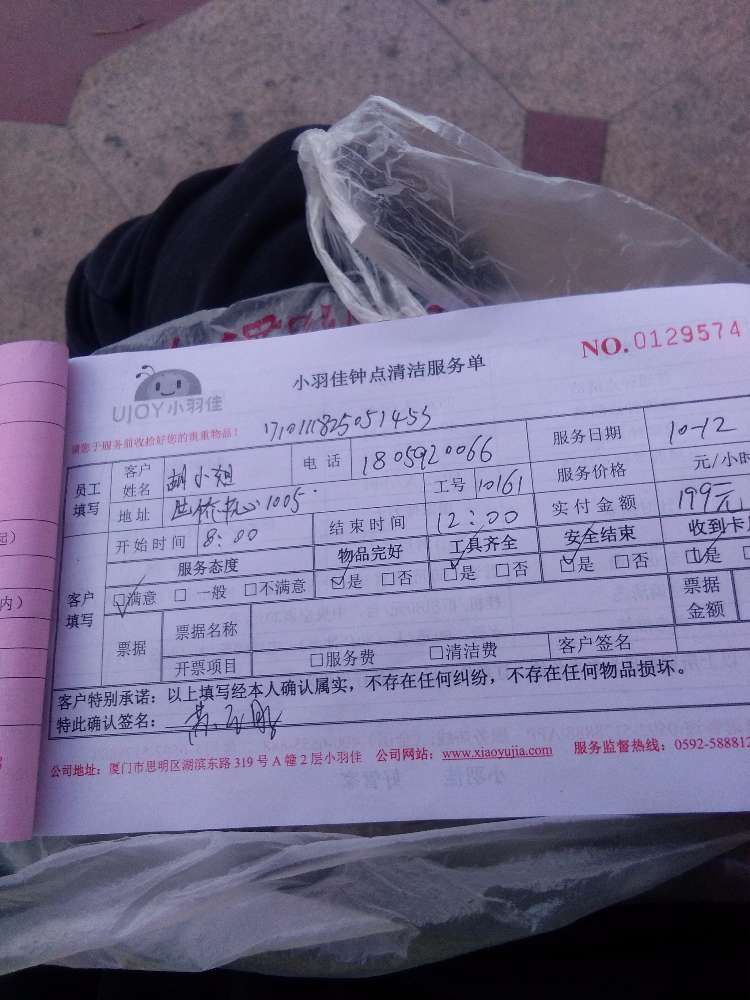 NO.0129574
小羽佳钟点清洁服务单
UJOY小羽佳
请您于服务前收拾好您的贵重物品!
17101118825051453
员工填写 客户姓名 胡小姐 电话 1805920066 服务日期 10-12
地址 1005 工号 10161 服务价格 元/小时
开始时间 8:00 结束时间 12:00 实付金额 199元
客户填写 服务态度 物品完好 工具齐全 安全结束 收到卡
□满意 □一般 □不满意 □是 □否 □是 □否 □是 □否 □是
票据 票据名称 票据金额
开票项目 □服务费 □清洁费 客户签名
客户特别承诺:以上填写经本人确认属实,不存在任何纠纷,不存在任何物品损坏。
特此确认签名:
公司地址:厦门市思明区湖滨东路319号A幢2层小羽佳 公司网站:www.xiaoyujia.com 服务监督热线:0592-588812